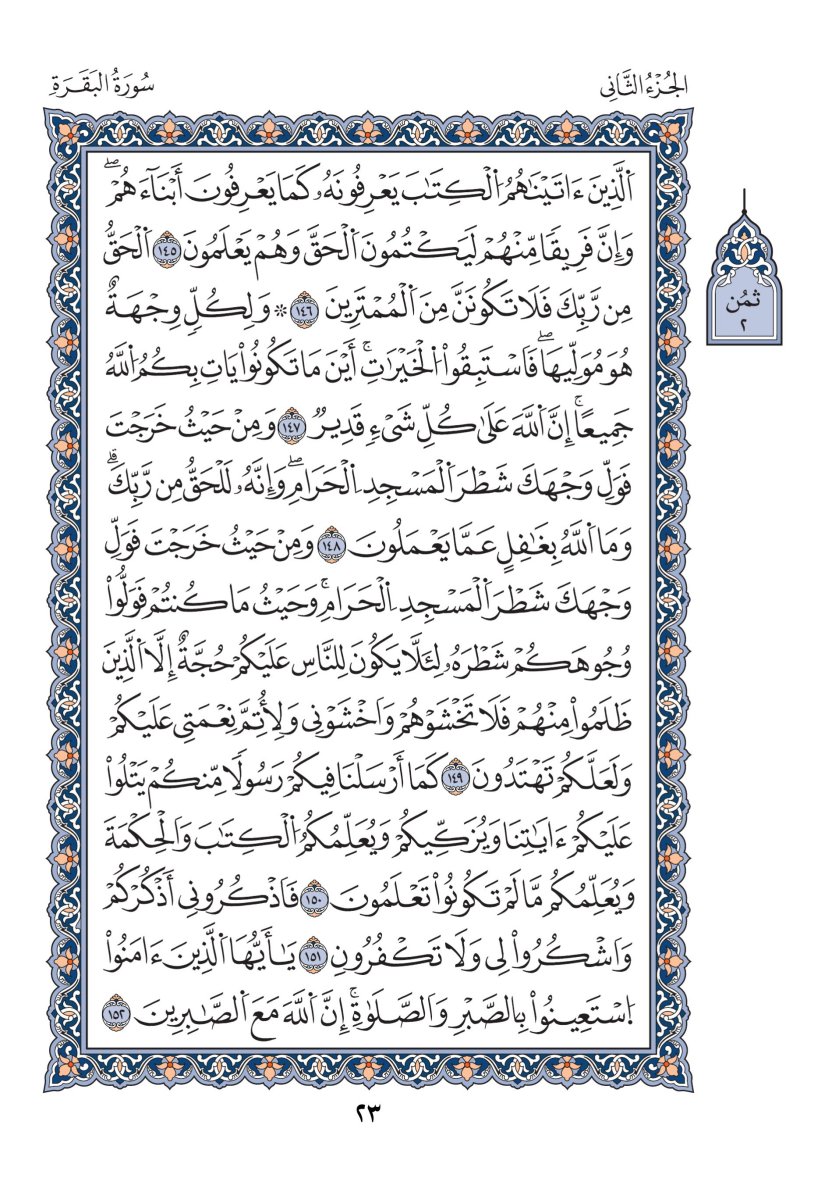 الجُزْءُ الثَّانِى
سُورَةُ البَقَرَةِ
اَ۬لَّذِينَ ءَاتَيْنَٰهُمُ اُ۬لْكِتَٰبَ يَعْرِفُونَهُۥ كَمَا يَعْرِفُونَ أَبْنَآءَهُمْۖ
وَإِنَّ فَرِيقٗا مِّنْهُمْ لَيَكْتُمُونَ اَ۬لْحَقَّ وَهُمْ يَعْلَمُونَ ١٤٥ اَ۬لْحَقُّ
مِن رَّبِّكَ فَلَا تَكُونَنَّ مِنَ اَ۬لْمُمْتَرِينَ ١٤٦ ۞ وَلِكُلّٖ وِجْهَةٌ
هُوَ مُوَلِّيهَاۖ فَاسْتَبِقُواْ اُ۬لْخَيْرَٰتِۚ أَيْنَ مَا تَكُونُواْ يَاتِ بِكُمُ اُ۬للَّهُ
جَمِيعًاۚ إِنَّ اَ۬للَّهَ عَلَىٰ كُلِّ شَىْءٖ قَدِيرٞ ١٤٧ وَمِنْ حَيْثُ خَرَجْتَ
فَوَلِّ وَجْهَكَ شَطْرَ اَ۬لْمَسْجِدِ اِ۬لْحَرَامِۖ وَإِنَّهُۥ لَلْحَقُّ مِن رَّبِّكَۗ
وَمَا اَ۬للَّهُ بِغَٰفِلٍ عَمَّا يَعْمَلُونَ ١٤٨ وَمِنْ حَيْثُ خَرَجْتَ فَوَلِّ
وَجْهَكَ شَطْرَ اَ۬لْمَسْجِدِ اِ۬لْحَرَامِۚ وَحَيْثُ مَا كُنتُمْ فَوَلُّواْ
وُجُوهَكُمْ شَطْرَهُۥ لِئَلَّا يَكُونَ لِلنَّاسِ عَلَيْكُمْ حُجَّةٌ إِلَّا اَ۬لَّذِينَ
ظَلَمُواْ مِنْهُمْ فَلَا تَخْشَوْهُمْ وَاخْشَوْنِى وَلِأُتِمَّ نِعْمَتِى عَلَيْكُمْ
وَلَعَلَّكُمْ تَهْتَدُونَ ١٤٩ كَمَا أَرْسَلْنَا فِيكُمْ رَسُولٗا مِّنكُمْ يَتْلُواْ
عَلَيْكُمْ ءَايَٰتِنَا وَيُزَكِّيكُمْ وَيُعَلِّمُكُمُ اُ۬لْكِتَٰبَ وَالْحِكْمَةَ
وَيُعَلِّمُكُم مَّا لَمْ تَكُونُواْ تَعْلَمُونَ ١٥٠ فَاذْكُرُونِى أَذْكُرْكُمْ
وَاشْكُرُواْ لِى وَلَا تَكْفُرُونِ ١٥١ يَٰأَيُّهَا اَ۬لَّذِينَ ءَامَنُواْ
اُ۪سْتَعِينُواْ بِالصَّبْرِ وَالصَّلَوٰةِۚ إِنَّ اَ۬للَّهَ مَعَ اَ۬لصَّٰبِرِينَ ١٥٢
ثُمُن
٢
٢٣